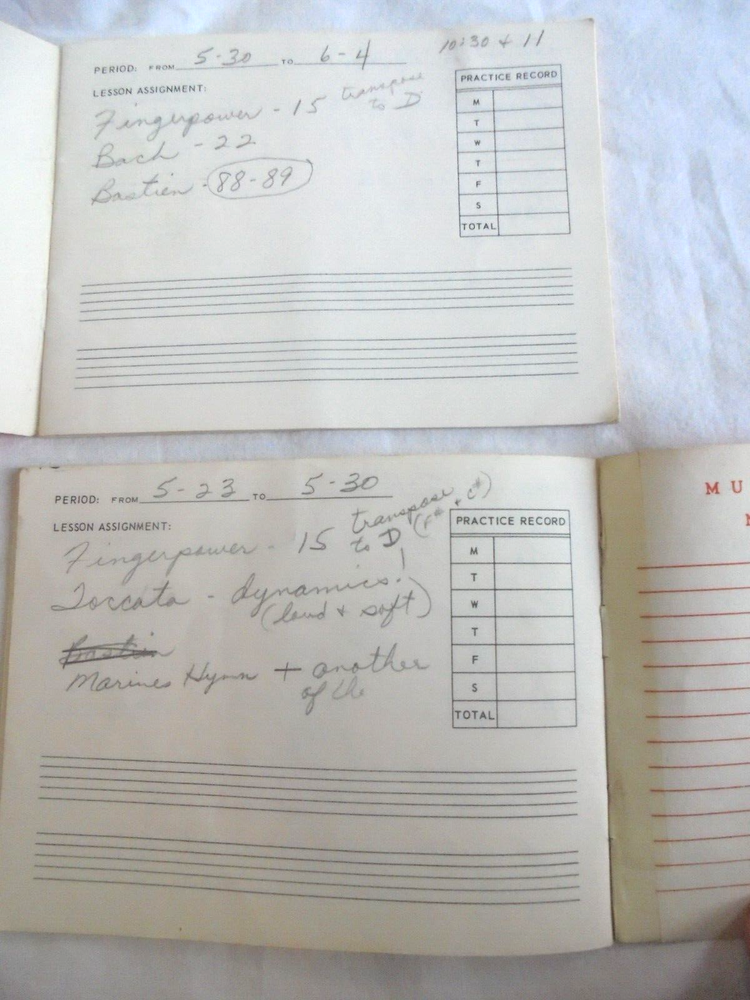 10:30 + 11
PERIOD: FROM 5-30 TO 6-4
LESSON ASSIGNMENT:
Fingerpower - 15 transpose to D
Bach - 22
Bastien - 88-89
PRACTICE RECORD
M
T
W
T
F
S
TOTAL
PERIOD: FROM 5-23 TO 5-30
LESSON ASSIGNMENT:
Fingerpower - 15 transpose to D (F# + C#)
Toccata - dynamics!
(loud + soft)
Bastien
Marines Hymn + another
of the
PRACTICE RECORD
M
T
W
T
F
S
TOTAL
MU